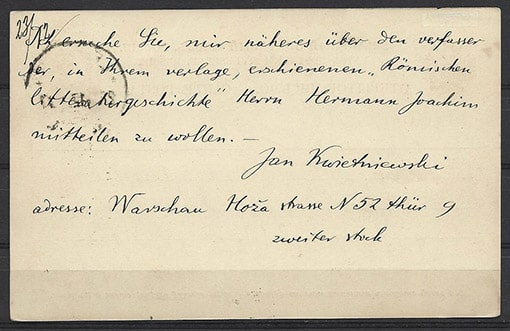 23/12
Ich ersuche Sie, mir näheres über den verfasser
der, in Ihrem verlage, erschienenen „Römischen
litteraturgeschichte" Herrn Hermann Joachim
mitteilen zu wollen. —
Jan Kwietniewski
adresse: Warschau Hoża strasse N 52 thür 9
zweiter stock